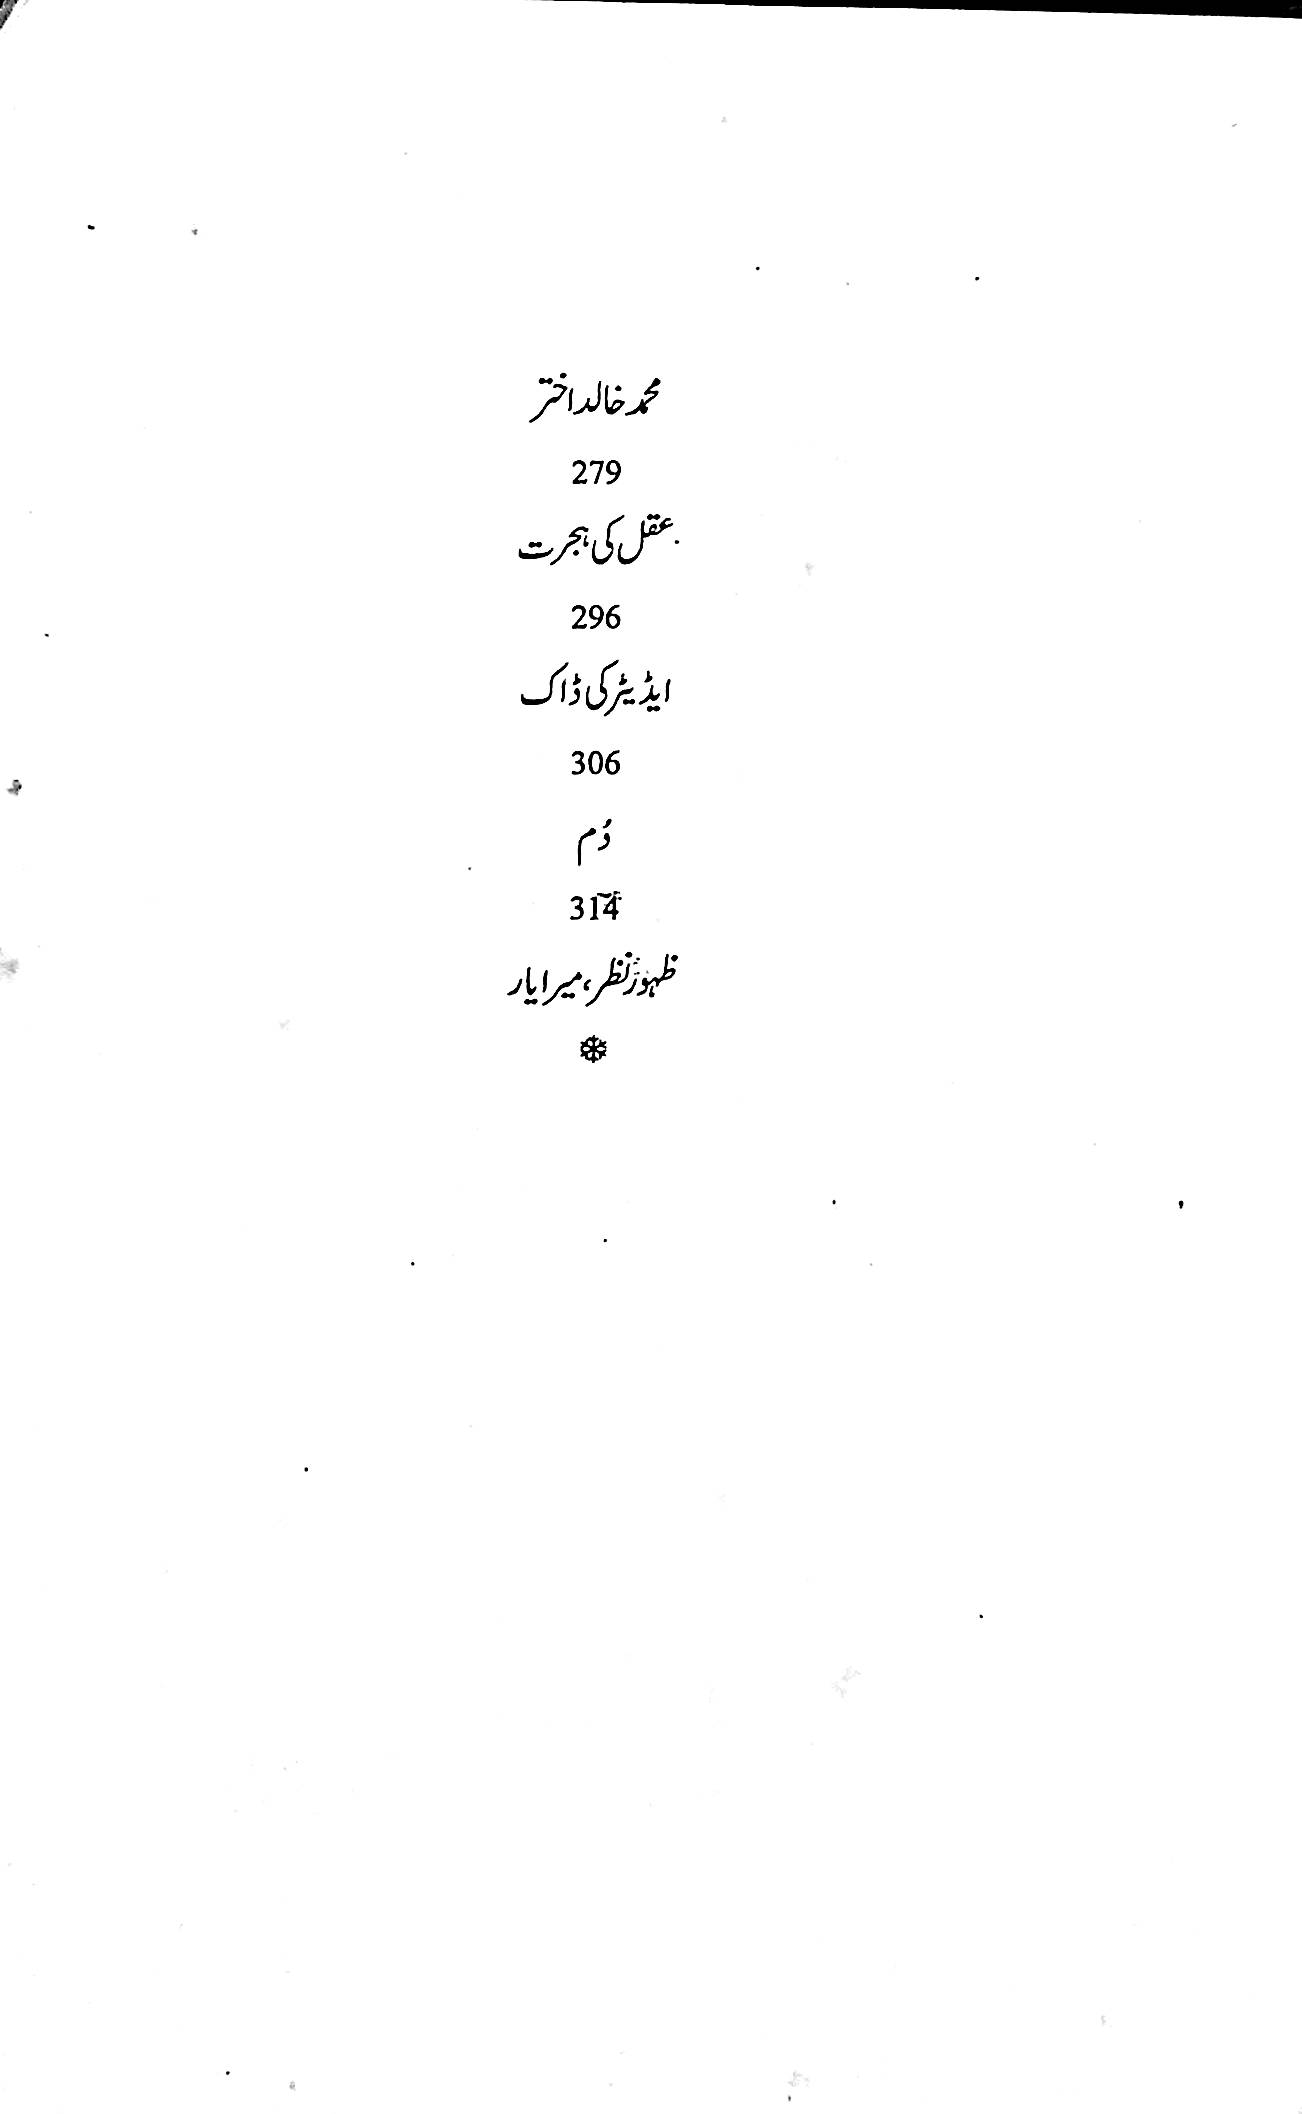 محمد خالد اختر
279
عقل کی ہجرت
296
ایڈیٹر کی ڈاک
306
دُم
314
ظہور نظر، میرا یار